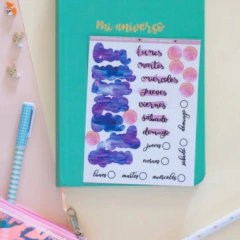 mi universo
lunes
martes
miércoles
jueves
viernes
sábado
domingo
jueves
viernes
lunes martes miércoles
sábado
domingo